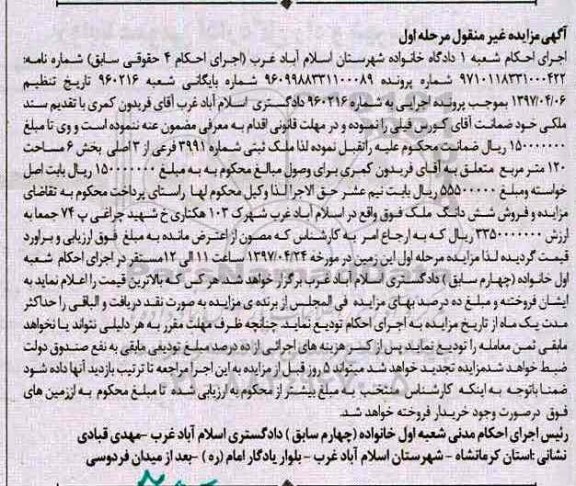 آگهی مزایده غیر منقول مرحله اول
اجرای احکام شعبه ۱ دادگاه خانواده شهرستان اسلام آباد غرب (اجرای احکام ۴ حقوقی سابق) شماره نامه:
۹۷۱۰۱۱۸۳۳۱۰۰۰۴۲۲ شماره پرونده ۹۶۰۹۹۸۸۳۳۱۱۰۰۰۸۹ شماره بایگانی شعبه ۹۶۰۲۱۶ تاریخ تنظیم
۱۳۹۷/۰۴/۰۶ بموجب پرونده اجرایی به شماره ۹۶۰۲۱۶ دادگستری اسلام آباد غرب آقای فریدون کمری با تقدیم سند
ملکی خود ضمانت آقای کورس فیلی را نموده و در مهلت قانونی اقدام به معرفی مضمون عنه ننموده است و وی تا مبلغ
۱۵۰۰۰۰۰۰۰ ریال ضمانت محکوم علیه راتقبل نموده لذا ملک ثبتی شماره ۳۹۹۱ فرعی از ۳ اصلی بخش ۶ مساحت
۱۲۰ متر مربع متعلق به آقای فریدون کمری برای وصول مبالغ محکوم به به مبلغ ۱۵۰۰۰۰۰۰۰ ریال بابت اصل
خواسته ومبلغ ۵۵۵۰۰۰۰۰ ریال بابت نیم عشر حق الاجرا لذا وکیل محکوم لها راستای پرداخت محکوم به تقاضای
مزایده و فروش شش دانگ ملک فوق واقع در اسلام آباد غرب شهرک ۱۰۳ هکتاری خ شهید چراغی پ ۷۴ جمعا به
ارزش ۳۳۵۰۰۰۰۰۰ ریال که به ارجاع امر به کارشناس که مصون از اعترض مانده به مبلغ فوق ارزیابی و براورد
قیمت گردیده لذا مزایده مرحله اول این زمین در مورخه ۱۳۹۷/۰۴/۲۴ ساعت ۱۱ الی ۱۲مستقر در اجرای احکام شعبه
اول خانواده (چهارم سابق) دادگستری اسلام آباد غرب برگزار خواهد شد. هر کس که بالاترین قیمت را اعلام نماید به
ایشان فروخته و مبلغ ده درصد بهای مزایده فی المجلس از برنده ی مزایده به صورت نقد دریافت و الباقی را حداکثر
مدت یک ماه از تاریخ مزایده به اجرای احکام تودیع نماید. چنانچه ظرف مهلت مقرر به هر دلیلی نتواند یا نخواهد
مابقی ثمن معامله را تودیع نماید پس از کسر هزینه های اجرائی از ده درصد مبلغ تودیعی مابقی به نفع صندوق دولت
ضبط خواهد شدمزایده تجدید خواهد شد میتواند ۵ روز قبل از مزایده به این اجرا مراجعه تا ترتیب بازدید آنها داده شود
ضمنا باتوجه به اینکه کارشناس منتخب به مبلغ بیشتر از محکوم به ارزیابی شده تا مبلغ محکوم به اززمین های
فوق درصورت وجود خریدار فروخته خواهد شد.
رئیس اجرای احکام مدنی شعبه اول خانواده (چهارم سابق) دادگستری اسلام آباد غرب -مهدی قبادی
نشانی :استان کرمانشاه - شهرستان اسلام آباد غرب - بلوار یادگار امام (ره) -بعد از میدان فردوسی